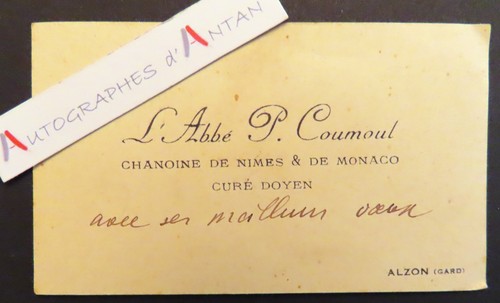 AUTOGRAPHES d'ANTAN
L'Abbé P. Coumoul
CHANOINE DE NIMES & DE MONACO
CURÉ DOYEN
avec ses meilleurs vœux
ALZON (GARD)